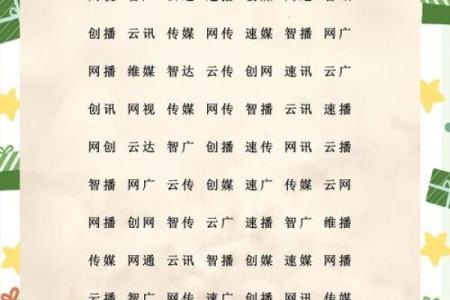 创播 云讯 传媒 网传 速媒 智播 网广
网播 维媒 智达 云传 创网 速讯 云广
创讯 网视 传媒 网传 智播 云讯 速播
网创 云达 智广 创播 速传 网讯 云播
智播 网广 云传 创媒 速广 传媒 云网
网播 创网 智传 云广 速播 智广 维播
传媒 网通 云讯 智播 创媒 速媒 网播
云播 智广 网传 速广 创播 传媒 云讯